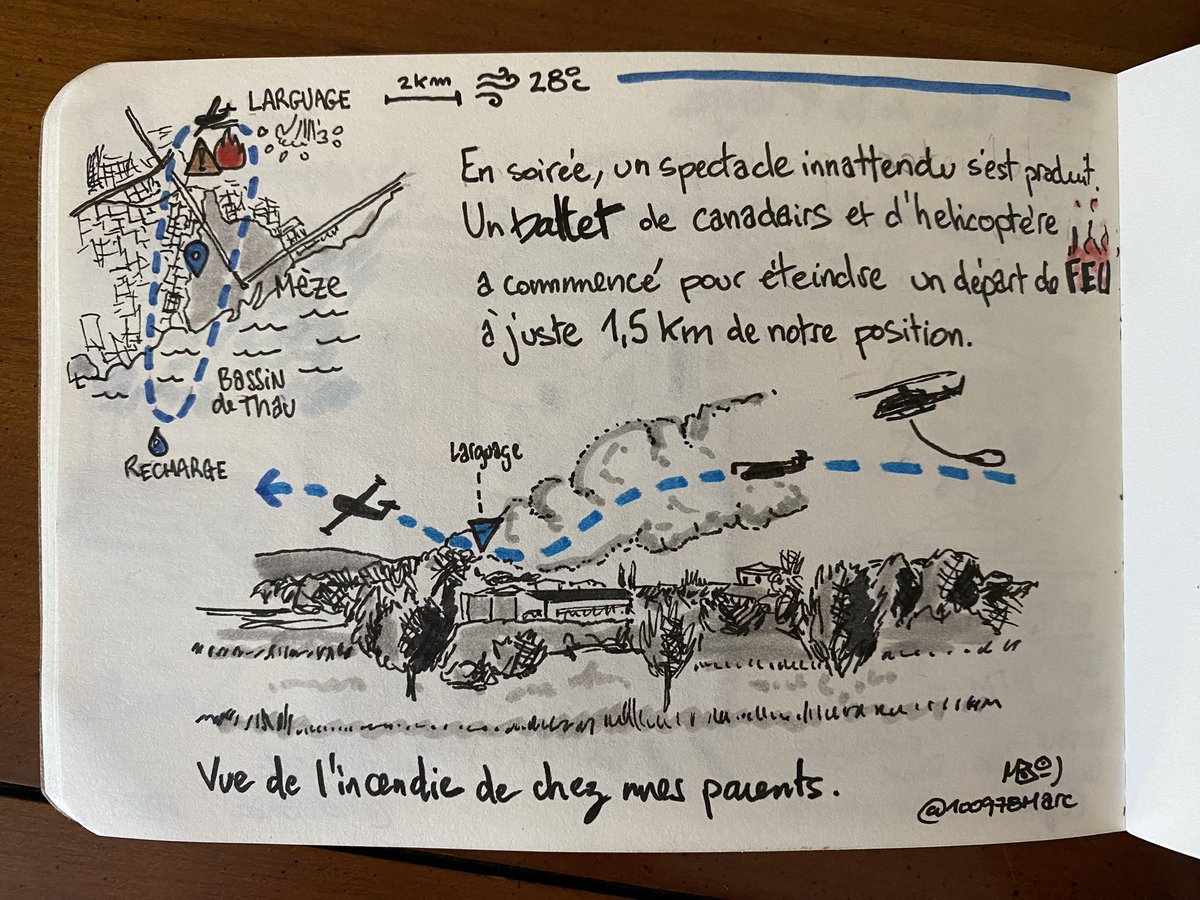 LARGUAGE
2km 28°C
Mèze
BASSIN
de THAU
RECHARGE
En soirée, un spectacle innattendu s'est produit.
Un ballet de canadairs et d'helicoptère
a commmencé pour éteindre un départ de FEU
à juste 1,5 km de notre position.
Larguage
Vue de l'incendie de chez mes parents.
@100978Marc